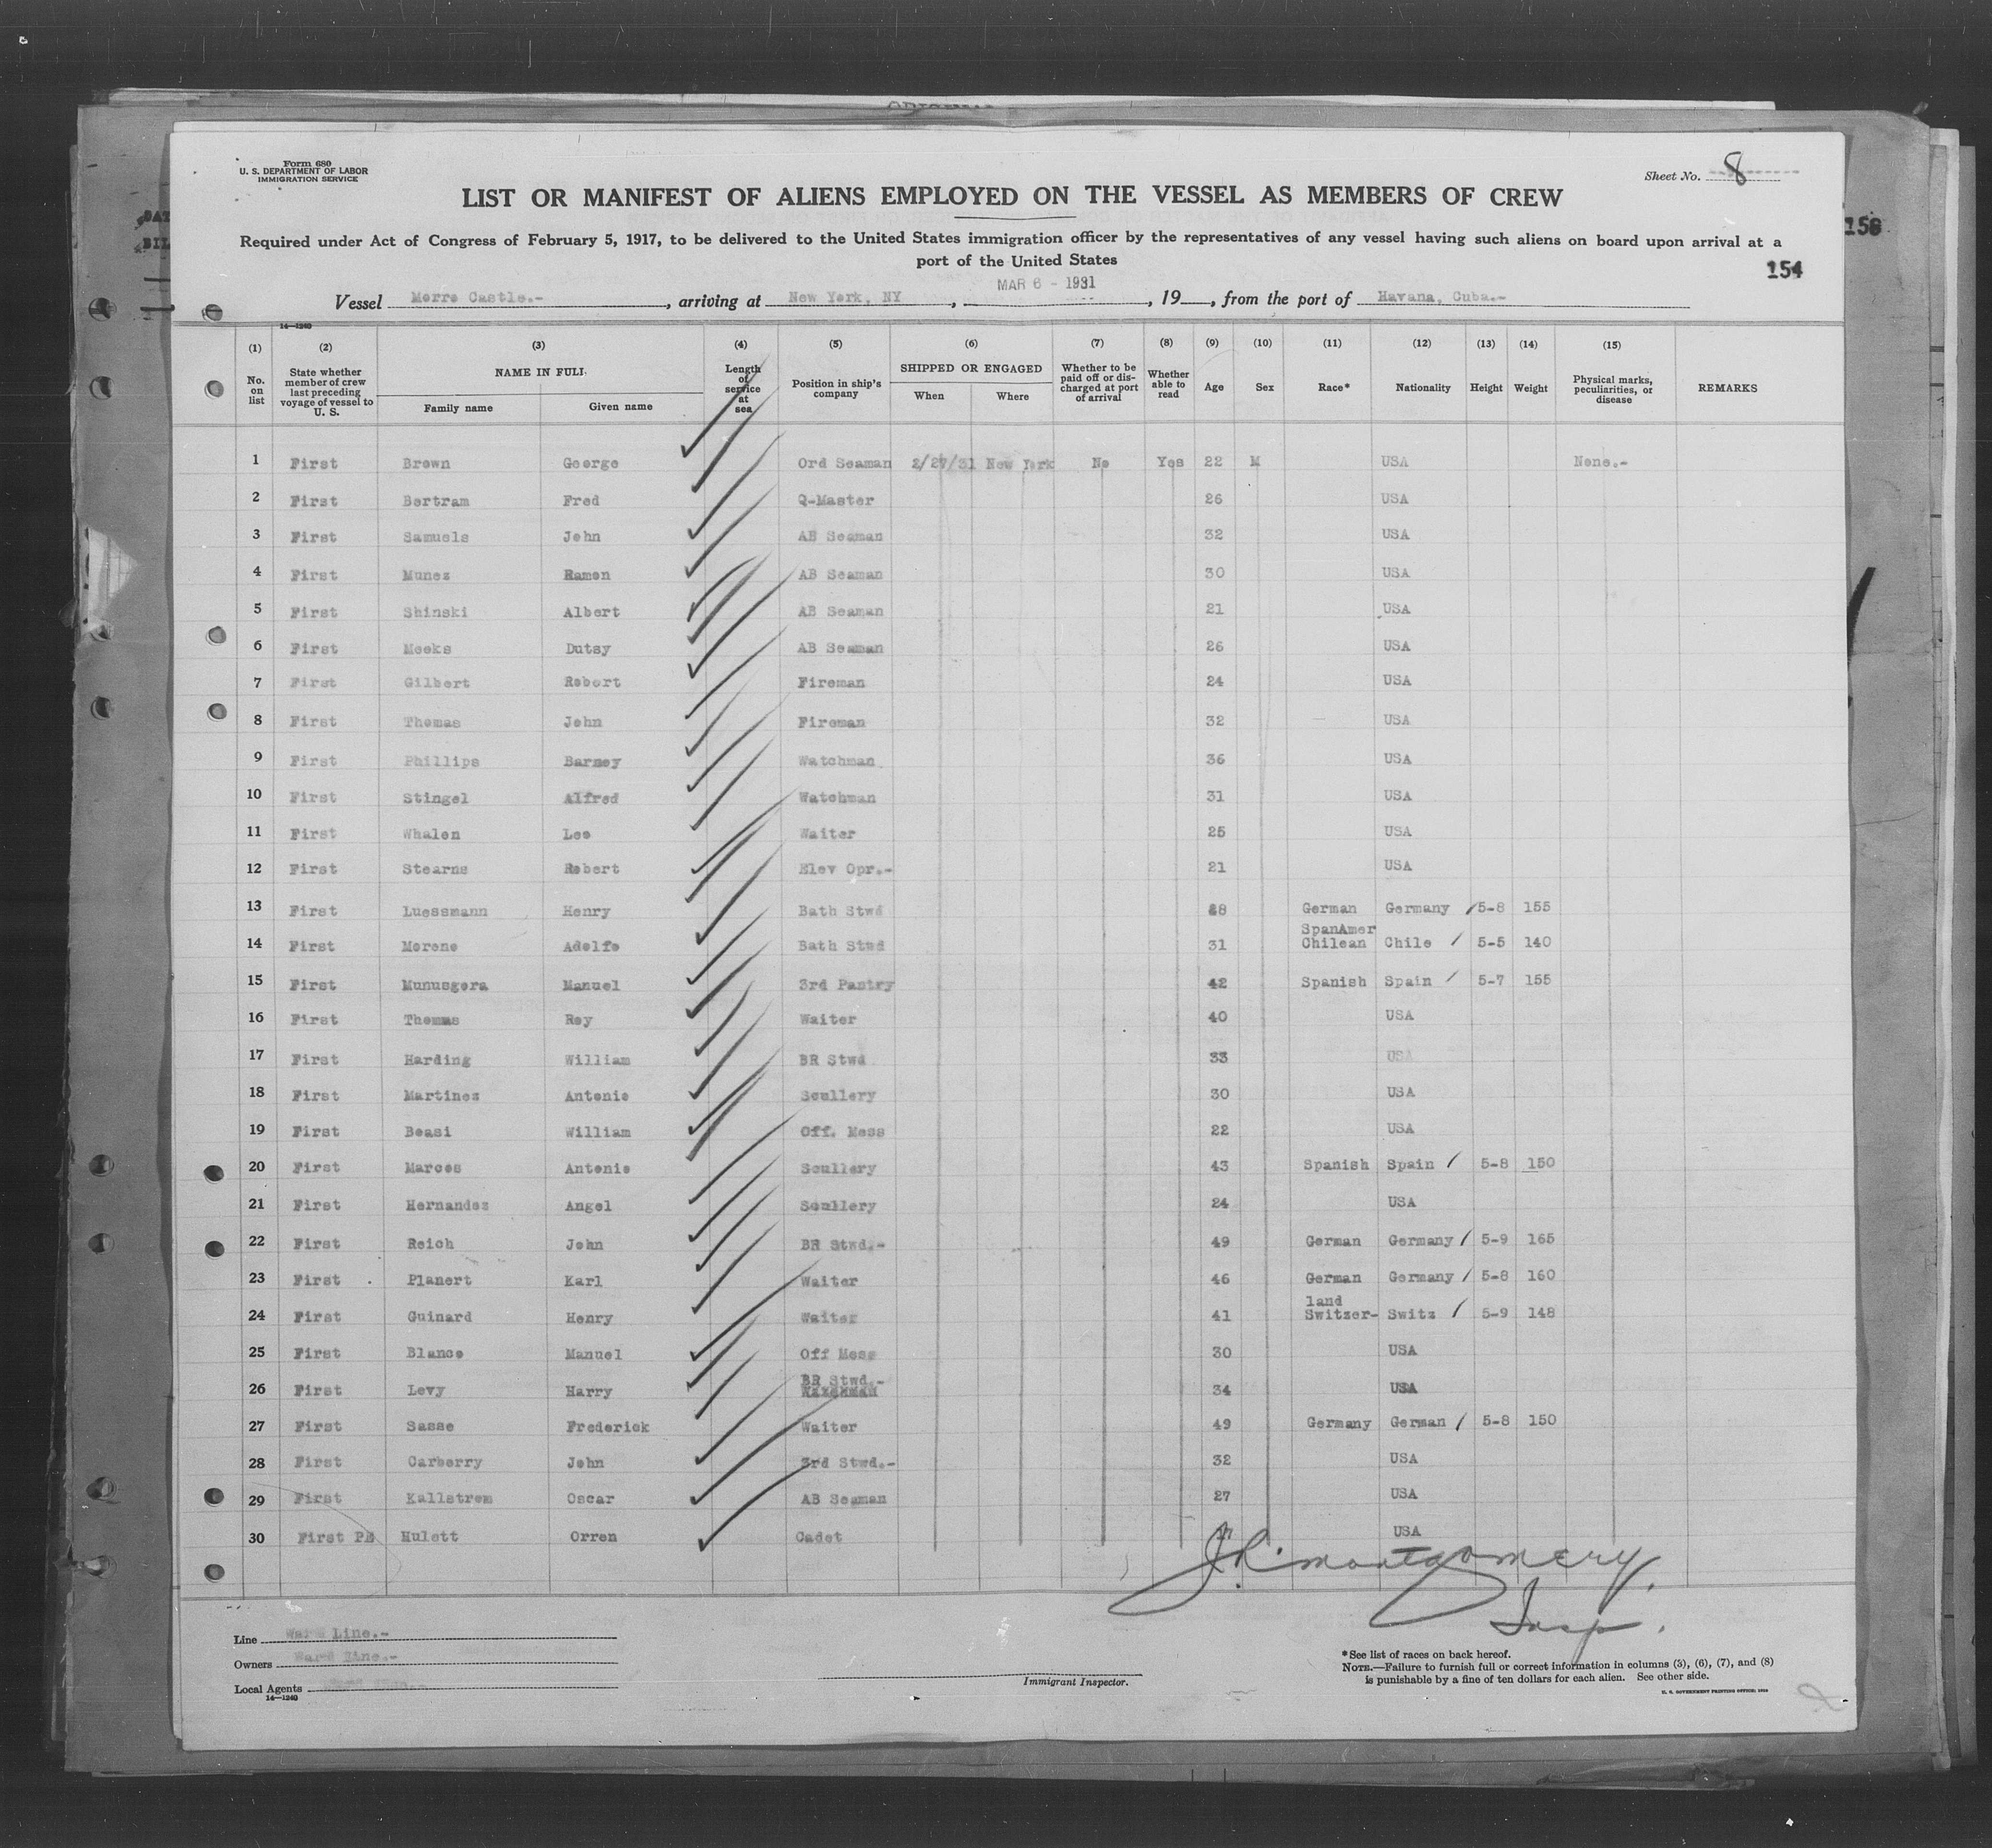 ORIGINAL
Form 680
U. S. DEPARTMENT OF LABOR
IMMIGRATION SERVICE
Sheet No. 8
LIST OR MANIFEST OF ALIENS EMPLOYED ON THE VESSEL AS MEMBERS OF CREW
Required under Act of Congress of February 5, 1917, to be delivered to the United States immigration officer by the representatives of any vessel having such aliens on board upon arrival at a
port of the United States
158
154
MAR 6 - 1931
Vessel Morro Castle.-, arriving at New York, NY, , 19 , from the port of Havana, Cuba.-
14—1240
(1) (2) (3) (4) (5) (6) (7) (8) (9) (10) (11) (12) (13) (14) (15)
No. on list State whether member of crew last preceding voyage of vessel to U. S. NAME IN FULL Family name Given name Length of service at sea Position in ship's company SHIPPED OR ENGAGED When Where Whether to be paid off or discharged at port of arrival Whether able to read Age Sex Race* Nationality Height Weight Physical marks, peculiarities, or disease REMARKS
1 First Brown George Ord Seaman 2/27/31 New York No Yes 22 M USA None.-
2 First Bertram Fred Q-Master 26 USA
3 First Samuels John AB Seaman 32 USA
4 First Munez Ramon AB Seaman 30 USA
5 First Shinski Albert AB Seaman 21 USA
6 First Meeks Dutsy AB Seaman 26 USA
7 First Gilbert Robert Fireman 24 USA
8 First Thomas John Fireman 32 USA
9 First Phillips Barney Watchman 36 USA
10 First Stingel Alfred Watchman 31 USA
11 First Whalen Leo Waiter 25 USA
12 First Stearns Robert Elev Opr.- 21 USA
13 First Luessmann Henry Bath Stwd 28 German Germany 5-8 155
14 First Moreno Adolfo Bath Stwd 31 SpanAmer Chilean Chile 5-5 140
15 First Munusgera Manuel 3rd Pastry 42 Spanish Spain 5-7 155
16 First Thomas Roy Waiter 40 USA
17 First Harding William BR Stwd 33 USA
18 First Martinez Antonio Scullery 30 USA
19 First Beasi William Off. Mess 22 USA
20 First Marcos Antonio Scullery 43 Spanish Spain 5-8 150
21 First Hernandez Angel Scullery 24 USA
22 First Reich John BR Stwd.- 49 German Germany 5-9 165
23 First Planert Karl Waiter 46 German Germany 5-8 160
24 First Guinard Henry Waiter 41 land Switzer- Switz 5-9 148
25 First Blanco Manuel Off Mess 30 USA
26 First Levy Harry BR Stwd.- 34 USA
27 First Sasse Frederick Waiter 49 Germany German 5-8 150
28 First Carberry John 3rd Stwd.- 32 USA
29 First Kallstrom Oscar AB Seaman 27 USA
30 First PE Hulett Orren Cadet USA
J R Montgomery
Insp.
Line Ward Line.-
Owners Ward Line.-
Local Agents
14—1240
Immigrant Inspector.
*See list of races on back hereof.
NOTE.—Failure to furnish full or correct information in columns (3), (6), (7), and (8)
is punishable by a fine of ten dollars for each alien. See other side.
U. S. GOVERNMENT PRINTING OFFICE